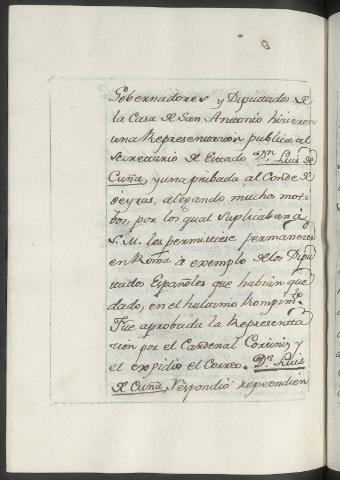 Gobernadores y Diputados de
la Casa de San Antonio hicieron
una Representacion publica al
Secretario de Estado Dn. Luis de
Cuña, y una pribada al Conde de
alegando muchos moti
bos, por los qual suplicaban a
S. M. les permitiese permanecer
en Roma à exemplo de los Dipu
tados Españoles que habian que
dado, en el halarmo Rompimto.
Fue aprobada la Representa
cion por el Cardenal Corsini, y
el expidio el Correo. Dn. Luis
de Cuña, respondiò repreendien